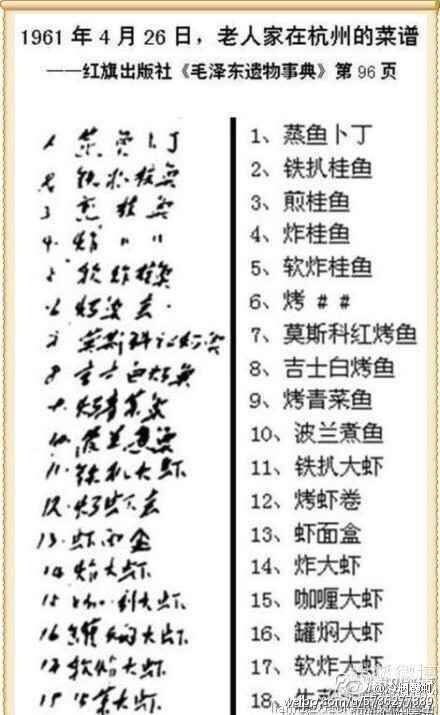 1961年4月26日，老人家在杭州的菜谱
——红旗出版社《毛泽东遗物事典》第96页
1 蒸鱼卜丁
2 铁扒桂鱼
3 煎桂鱼
4. 炸 〃 〃
5 软炸桂鱼
6 烤
7 莫斯科红烤鱼
8 吉士白烤鱼
9 烤青菜鱼
10. 波兰煮鱼
11. 铁扒大虾
12. 烤虾卷
13. 虾面盒
14 炸大虾
15 咖喱大虾
16 罐焖大虾
17 软炸大虾
18 大虾
1、蒸鱼卜丁
2、铁扒桂鱼
3、煎桂鱼
4、炸桂鱼
5、软炸桂鱼
6、烤 # #
7、莫斯科红烤鱼
8、吉士白烤鱼
9、烤青菜鱼
10、波兰煮鱼
11、铁扒大虾
12、烤虾卷
13、虾面盒
14、炸大虾
15、咖喱大虾
16、罐焖大虾
17、软炸大虾
18、